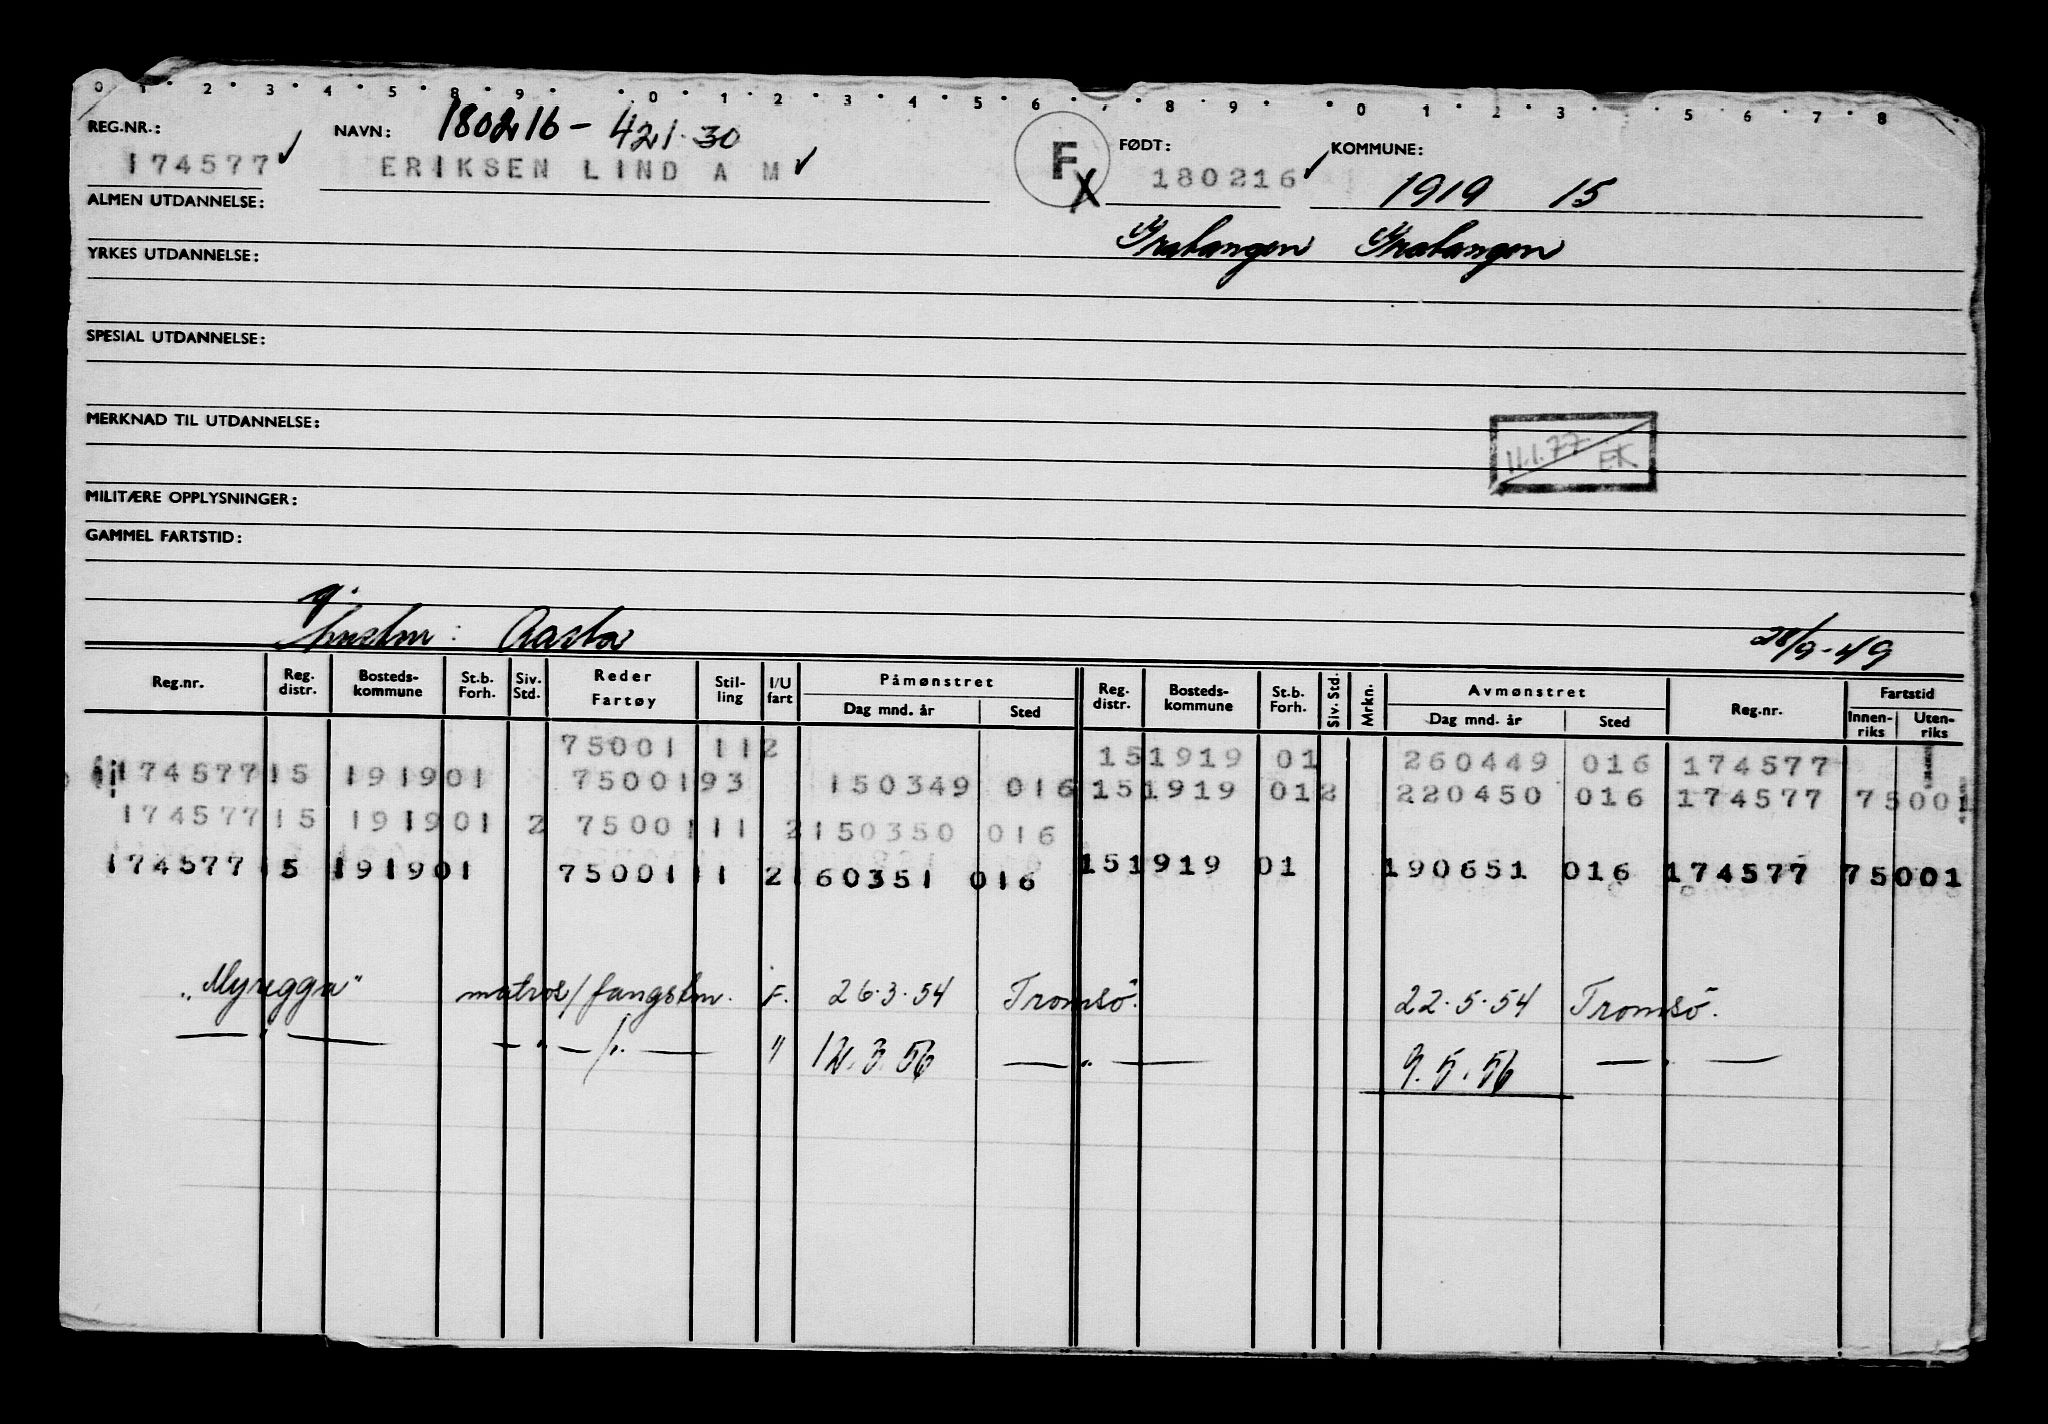 0 1 2 3 4 5 8 9 0 1 2 3 4 5 6 8 9 0 1 2 3 5 6 7 8
REG.NR.: NAVN: 180216 - 421.30 F FØDT: KOMMUNE:
174577 ✓ ERIKSEN LIND A M ✓ X 180216 ✓ 1919 15
ALMEN UTDANNELSE: Gratangen Gratangen
YRKES UTDANNELSE:
SPESIAL UTDANNELSE:
MERKNAD TIL UTDANNELSE:
11.1.77 EK
MILITÆRE OPPLYSNINGER:
GAMMEL FARTSTID:
hustru: Aasta 28/9-49
Reg.nr. Reg. distr. Bosteds-kommune St.b. Forh. Siv. Std. Reder Fartøy Stil-ling I/U fart Påmønstret Dag mnd. år Sted Reg. distr. Bosteds-kommune St.b. Forh. Siv. Std. Mrkn. Avmønstret Dag mnd. år Sted Reg.nr. Fartstid Innen-riks Uten-riks
75001 112 151919 01 260449 016 174577
174577 15 1919 01 75001 93 150349 016 151919 012 220450 016 174577 75001
174577 15 1919 01 2 75001 11 2 150350 016
174577 15 1919 01 75001 11 2 160351 016 151919 01 190651 016 174577 75001
"Myregga" matros/fangstm. F. 26.3.54 Tromsö. 22.5.54 Tromsö.
— " — — " — / " — " 12.3.56 — " — 9.5.56 — " —